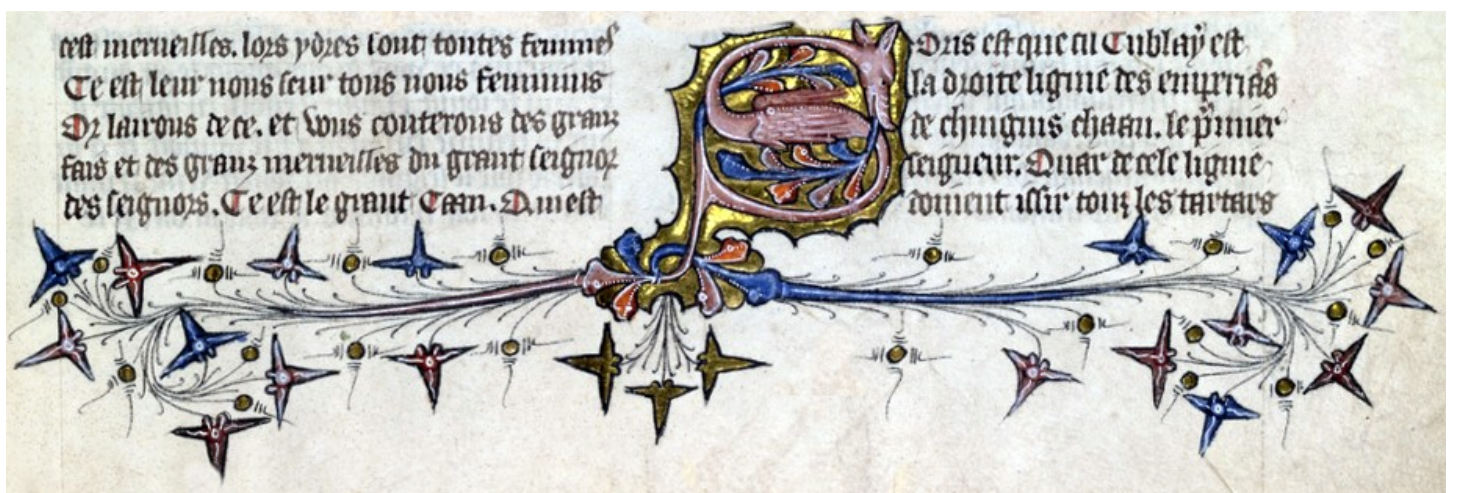 cest merueilles. lors ydres sont toutes femmes
Ce est leur nous seur tous nous feminins
Or lairons de ce. et vous conterons des granz
fais et des granz merueilles du grant seignor
des seignors. Ce est le grant Caan. Qui est
VOirs est que cil Cublay est
la droite lignie des
de chinguis chaan. le p'mier
seigneur. Quar de cele lignie
doiuent issir touz les tartars